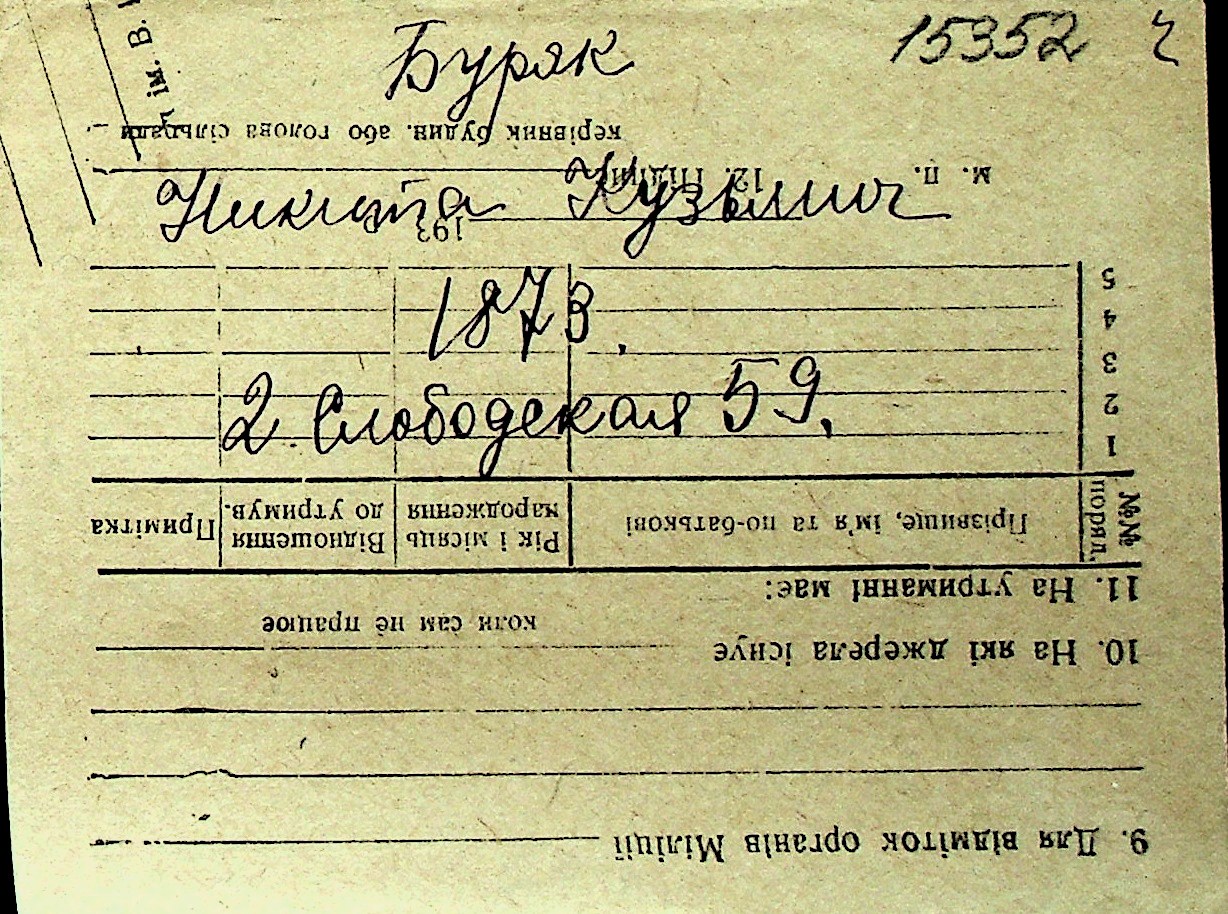 15352 ч
Буряк
Никита Кузьмич
1873.
2. Слободская 59.
9. Для відміток органів Міліції
10. На які джерела існує
коли сам не працює
11. На утриманні має:
№№ поряд.
Прізвище, ім'я та по-батькові
Рік і місяць народження
Відношення до утримув.
Примітка
1
2
3
4
5
193
м. п.
12. Підпис
керівник будин. або голова сільради
ім. В.